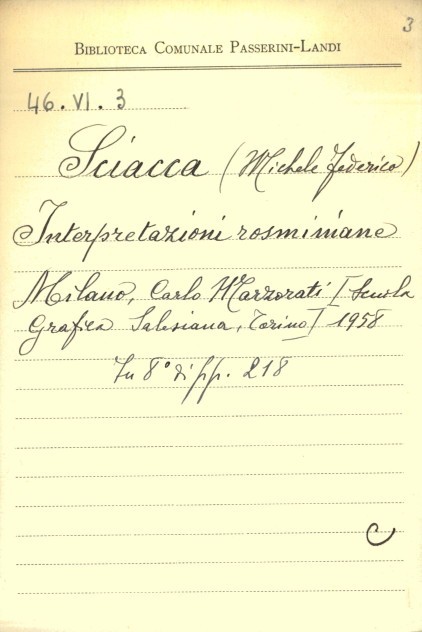 3
BIBLIOTECA COMUNALE PASSERINI-LANDI
46. VI. 3
Sciacca (Michele Federico)
Interpretazioni rosminiane
Milano, Carlo Marzorati [Scuola
Grafica Salesiana, Torino] 1958
In 8° di pp. 218
C